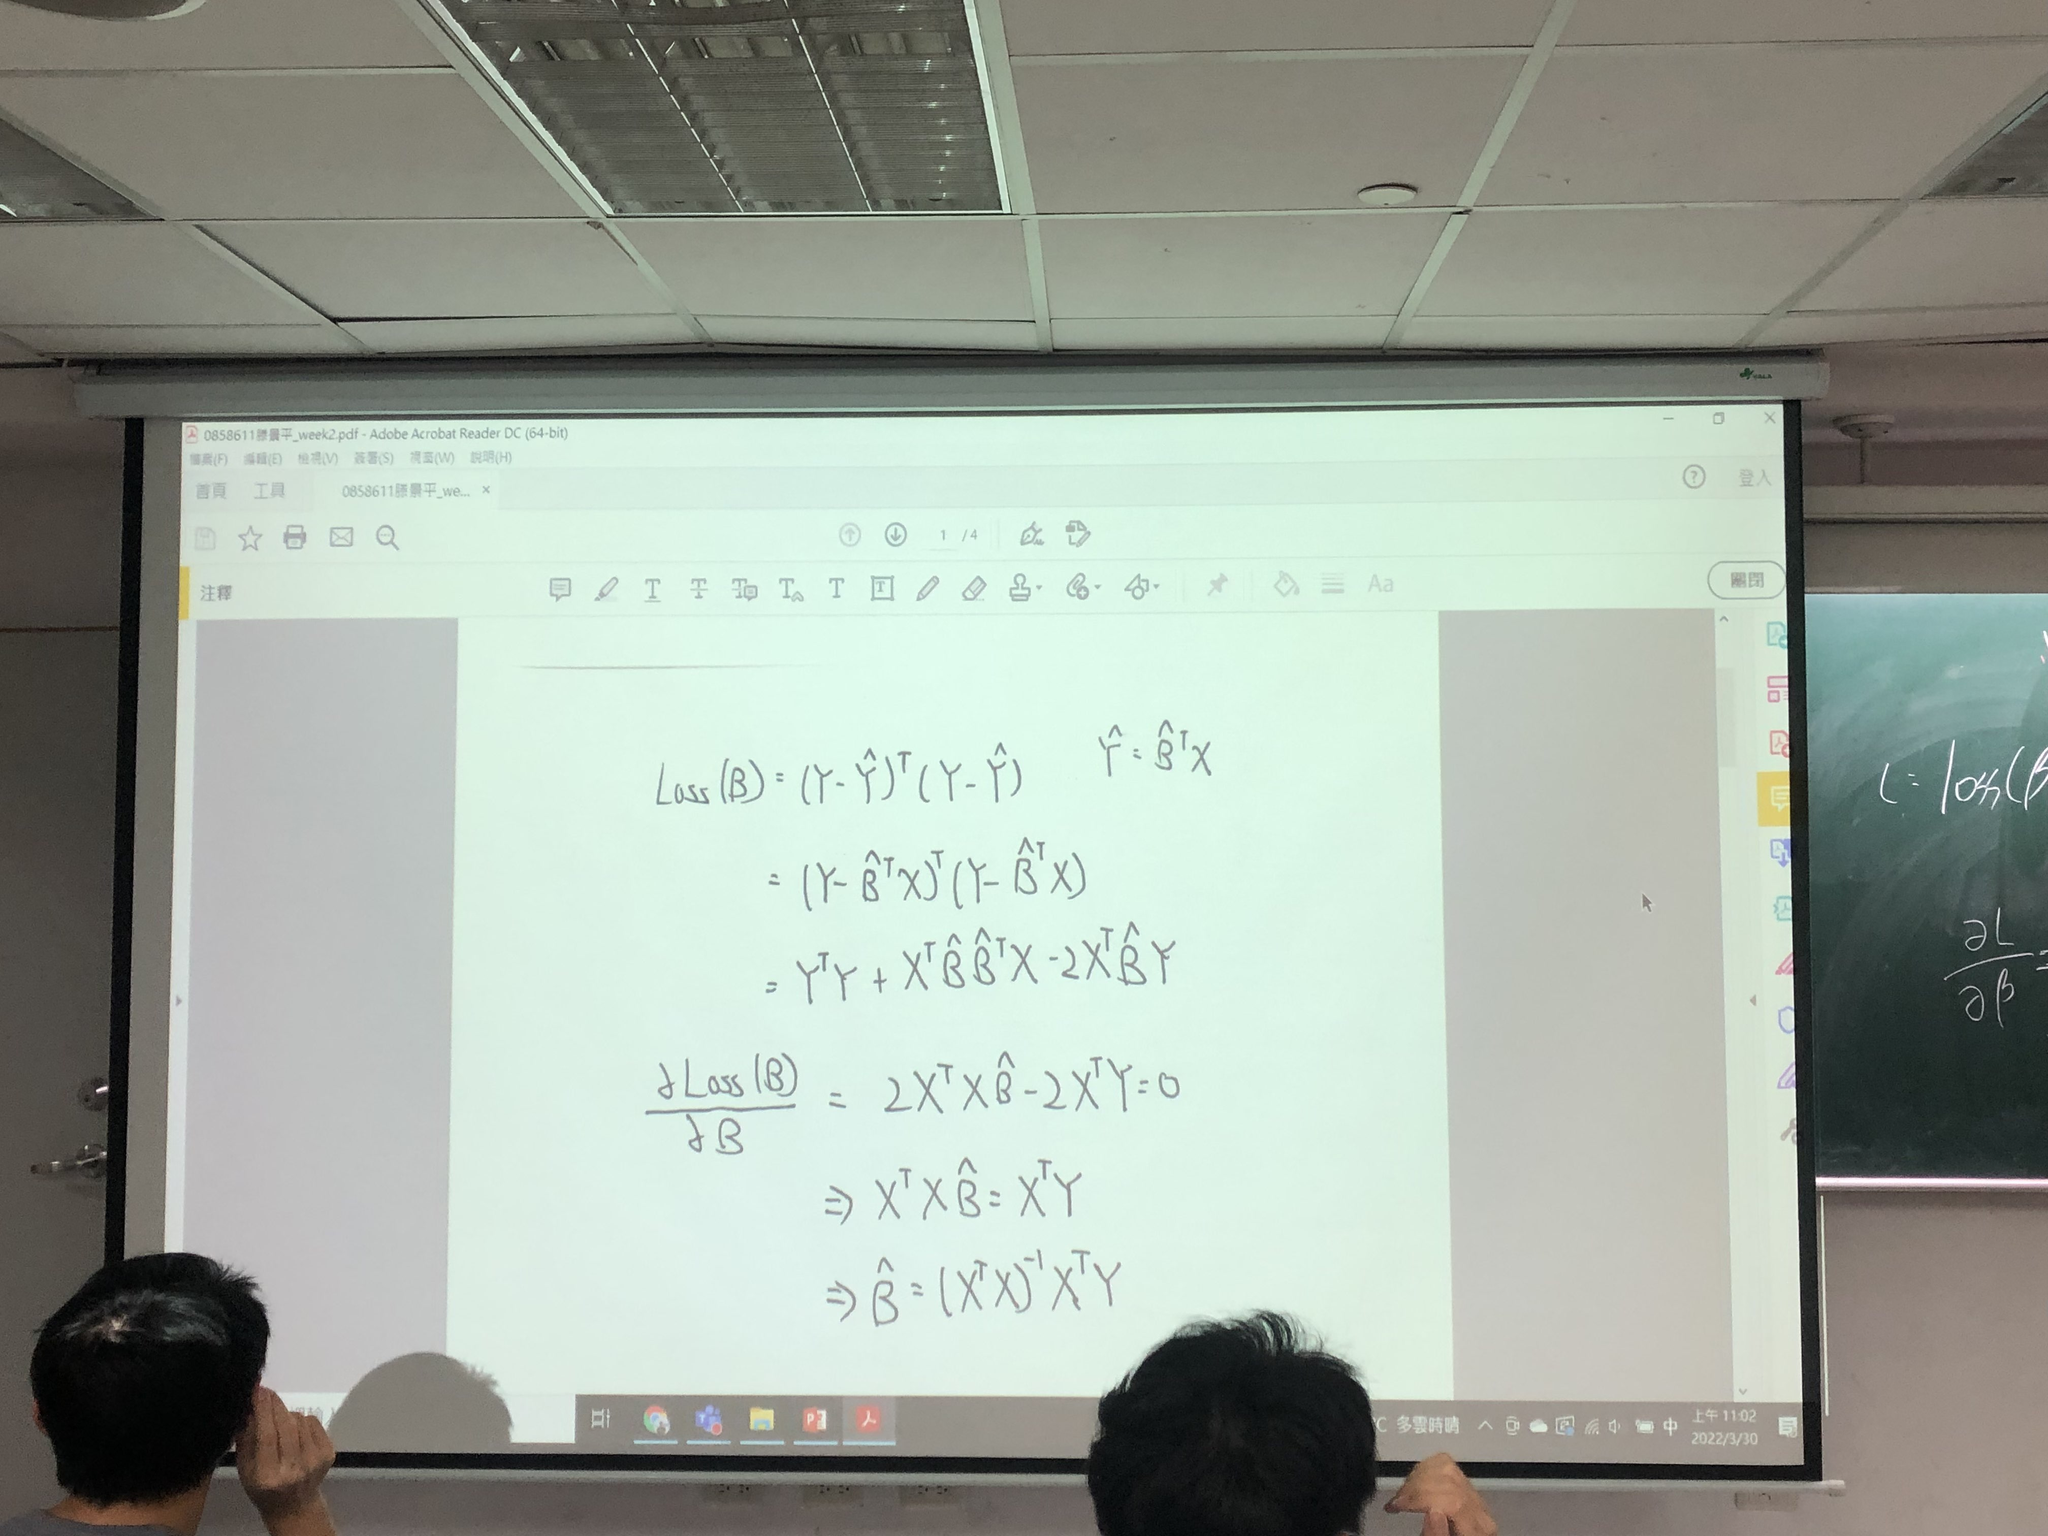 0858611滕景平_week2.pdf - Adobe Acrobat Reader DC (64-bit)
檔案(F) 編輯(E) 檢視(V) 簽署(S) 視窗(W) 說明(H)
首頁 工具 0858611滕景平_we... ×
? 登入
1 / 4
注釋
T T T T T T Aa
關閉
Loss(B) = (Y - Ŷ)ᵀ(Y - Ŷ) Ŷ = B̂ᵀX
= (Y - B̂ᵀX)ᵀ(Y - B̂ᵀX)
= YᵀY + XᵀB̂B̂ᵀX - 2XᵀB̂Y
∂Loss(B)/∂B = 2XᵀXB̂ - 2XᵀY = 0
⇒ XᵀXB̂ = XᵀY
⇒ B̂ = (XᵀX)⁻¹XᵀY
L = loss(β
∂L/∂β =
C 多雲時晴 中 上午 11:02
2022/3/30